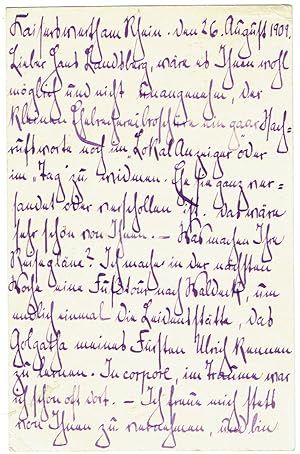 Kaiserswerth am Rhein. den 26. August 1909.
Lieber Hans Landsberg, wäre es Ihnen wohl
möglich und nicht unangenehm, der
kleinen Eulenberg-Broschüre ein paar Nach-
rufsworte noch im „Lokal Anzeiger" oder
im „Tag" zu widmen. Ehe sie ganz ver-
sandet oder verschollen ist. Das wäre
sehr schön von Ihnen. — Was machen Ihre
Reisepläne? Ich mache in der nächsten
Woche eine Fußtour nach Waldeck, um
endlich einmal die Leidensstätte, das
Golgatha meines Fürsten Ulrich kennen
zu lernen. In corpore, im Traume war
ich schon oft dort. — Ich freue mich stets
von Ihnen zu vernehmen, und bin